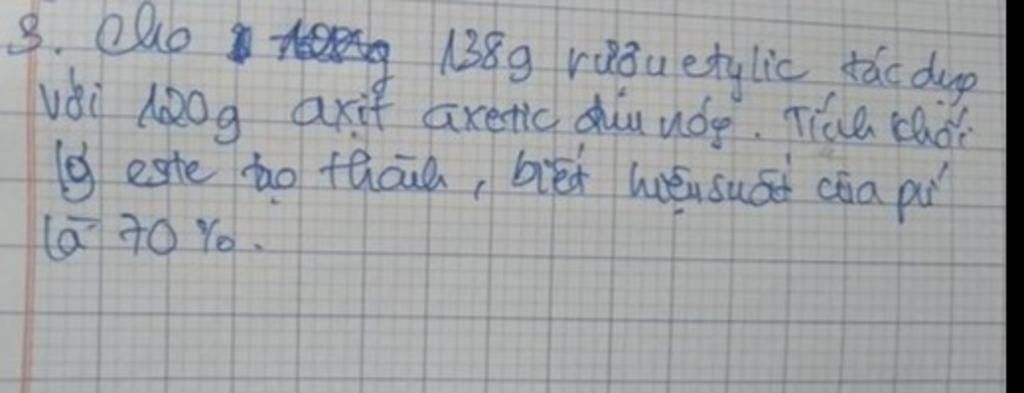 3. Cho 138g rượu etylic tác dụng
với 120g axit axetic đun nóng. Tính khối
lg este tạo thành, biết hiệu suất của pứ
là 70%.